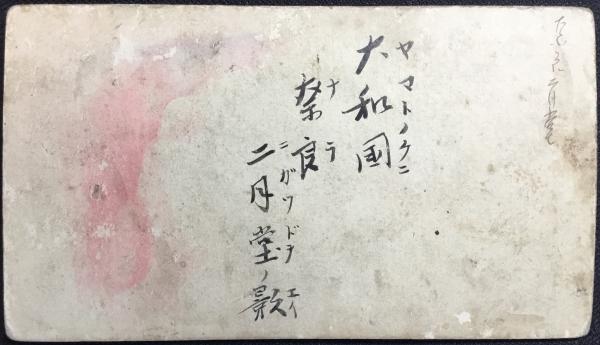 二月堂
ヤマトノクニ
大和国
ナラ
奈良
ニガツドヲ エイ
二月堂ノ影